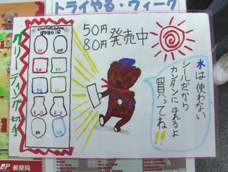 トライやる・ウィーク
グリーティング切手
50円
80円 発売中
水は使わない
シールだから
カンタンにはれるよ
買ってね!!
郵便局